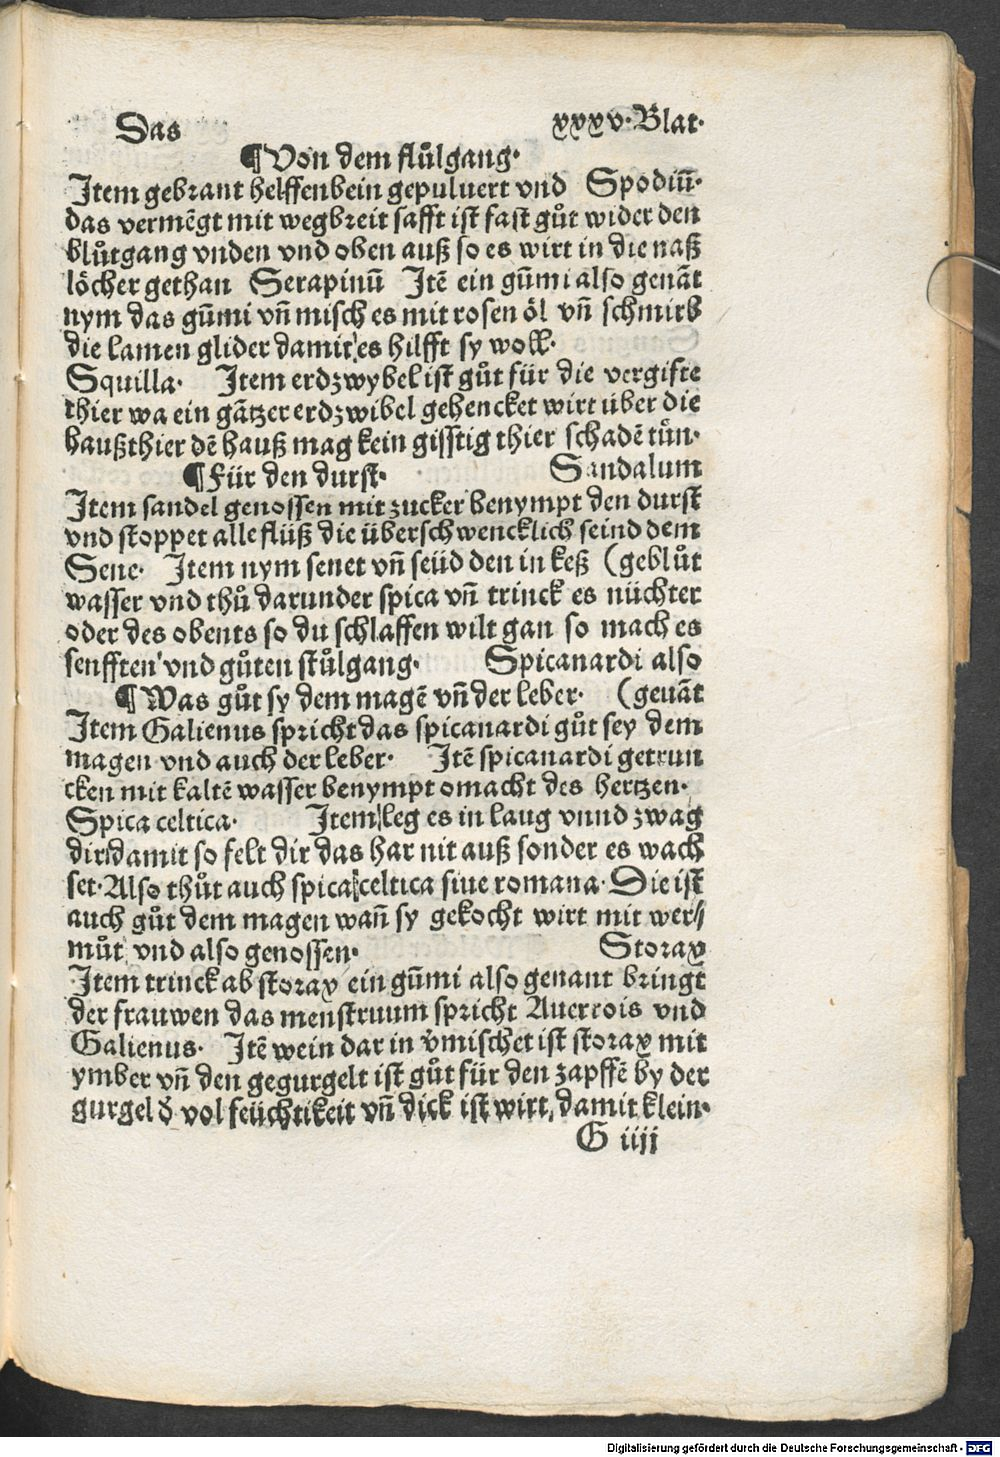 Das xxxv. Blat.
¶ Von dem flůlgang.
Item gebrant helffenbein gepuluert vnd Spodiū.
das vermēgt mit wegbreit safft ist fast gůt wider den
blůtgang vnden vnd oben auß so es wirt in die naß
löcher gethan Serapinū Itē ein gūmi also genāt
nym das gūmi vn̄ misch es mit rosen öl vn̄ schmirb
die lamen glider damit es hilfft sy woll.
Squilla. Item erdzwybel ist gůt für die vergifte
thier wa ein gātzer erdzwibel gehencket wirt über die
haußthier dē hauß mag kein gisstig thier schadē tůn.
¶ Für den durst. Sandalum
Item sandel genossen mit zucker benympt den durst
vnd stoppet alle flüß die überschwencklich seind dem
Sene. Item nym senet vn̄ seüd den in keß (geblůt
wasser vnd thů darunder spica vn̄ trinck es nüchter
oder des obents so du schlaffen wilt gan so mach es
senfften vnd gůten stůlgang. Spicanardi also
¶ Was gůt sy dem magē vn̄ der leber. (genāt
Item Galienus spricht das spicanardi gůt sey dem
magen vnd auch der leber. Itē spicanardi getrun
cken mit kaltē wasser benympt omacht des hertzen.
Spica celtica. Item leg es in laug vnnd zwag
dir damit so felt dir das har nit auß sonder es wach
set. Also thůt auch spica celtica siue romana. Die ist
auch gůt dem magen wan̄ sy gekocht wirt mit wer/
můt vnd also genossen. Storax
Item trinck ab storax ein gūmi also genant bringt
der frauwen das menstruum spricht Auerrois vnd
Galienus. Itē wein dar in v̄mischet ist storax mit
ymber vn̄ den gegurgelt ist gůt für den zapffē by der
gurgel d̄ vol feüchtikeit vn̄ dick ist wirt damit klein.
G iiij
Digitalisierung gefördert durch die Deutsche Forschungsgemeinschaft - DFG